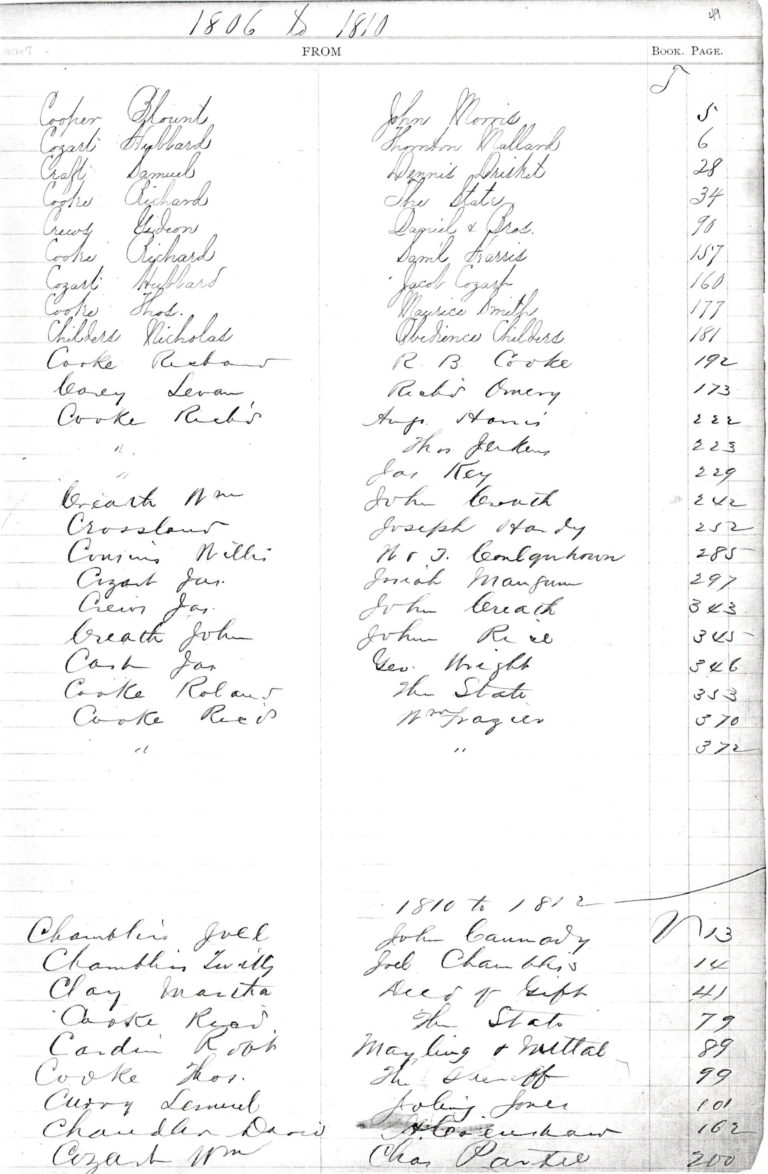 49
1806 to 1810
FROM BOOK. PAGE.
5
Cooper Blount John Morris 5
Cozart Hubbard Thornton Mallard 6
Craft Samuel Dennis Drisket 28
Cooke Richard The State 34
Crews Gideon Daniel & Bros. 90
Cooke Richard Saml Harris 157
Cozart Hubbard Jacob Cozart 160
Cooke Thos. Maurice Smith 177
Childers Nicholas Obedience Childers 181
Cooke Richard R. B. Cooke 192
Carey Levan Rich'd 173
Cooke Rich'd Aug. Harris 222
" Thos Jenkins 223
" Jas Key 229
Creath Wm John Creath 242
Crossland Joseph Handy 252
Cousins Willis W & J. 285
Cozart Jas. Josiah Mangum 297
Crews Jas. John Creath 343
Creath John John Rice 345
Cash Jas Geo. Wright 346
Cooke Roland The State 353
Cooke Ric'd Wm Frazier 370
" " 372
1810 to 1812
Chamblis Joel John Cannady V 13
Chamblis Twitty Joel Chamblis 14
Clay Martha Deed of Gift 41
Cooke Ric'd The State 79
Cardin Robt & 89
Cooke Thos. The Sheriff 99
Curry Lemuel Jones 101
Chandler David Crenshaw 162
Cozart Wm Chas Pardee 200